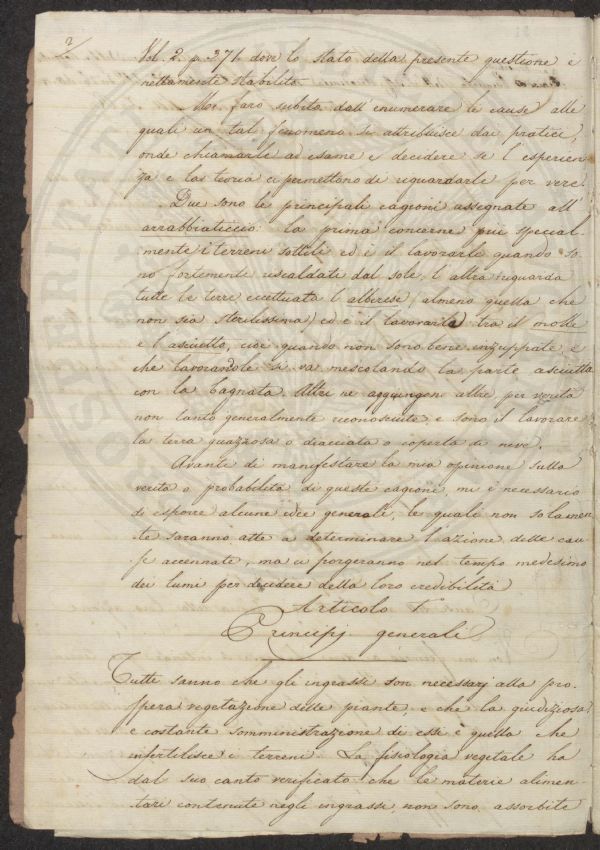 2/
Vol. 2. p. 371. dove lo stato della presente questione è
nettamente stabilito.
Mi farò subito dall'enumerare le cause alle
quali un tal fenomeno si attribuisce dai pratici,
onde chiamarle ad esame e decidere se l'esperien-
za e la teoria ci permettono di riguardarle per vere.
Due sono le principali cagioni assegnate all'
arrabbiaticcio: la prima concerne più special-
mente i terreni sottili ed è il lavorarle quando so-
no fortemente riscaldati dal sole, l'altra riguarda
tutte le terre eccettuata l'alberese (almeno quella che
non sia sterilissima) ed è il lavorarle tra il molle
e l'asciutto, cioè quando non sono bene inzuppate, e
che lavorandole si va mescolando la parte asciutta
con la bagnata. Altri ne aggiungono altre, per verità
non tanto generalmente riconosciute, e sono il lavorare
la terra guazzosa o diacciata o coperta di neve.
Avante di manifestare la mia opinione sulla
verità o probabilità di queste cagioni, mi è necessario
di esporre alcune idee generali, le quali non solamen-
te saranno atte a determinare l'azione delle cau-
se accennate, ma ci porgeranno nel tempo medesimo
dei lumi per decidere della loro credibilità
Articolo 1°
Principj generali
Tutti sanno che gl'ingrassi son necessarj alla pro-
spera vegetazione delle piante, e che la giudiziosa
e costante somministrazione di essi è quella che
infertilisce i terreni. La fisiologia vegetale ha
dal suo canto verificato che le materie alimen-
tari contenute negli ingrassi non sono assorbite